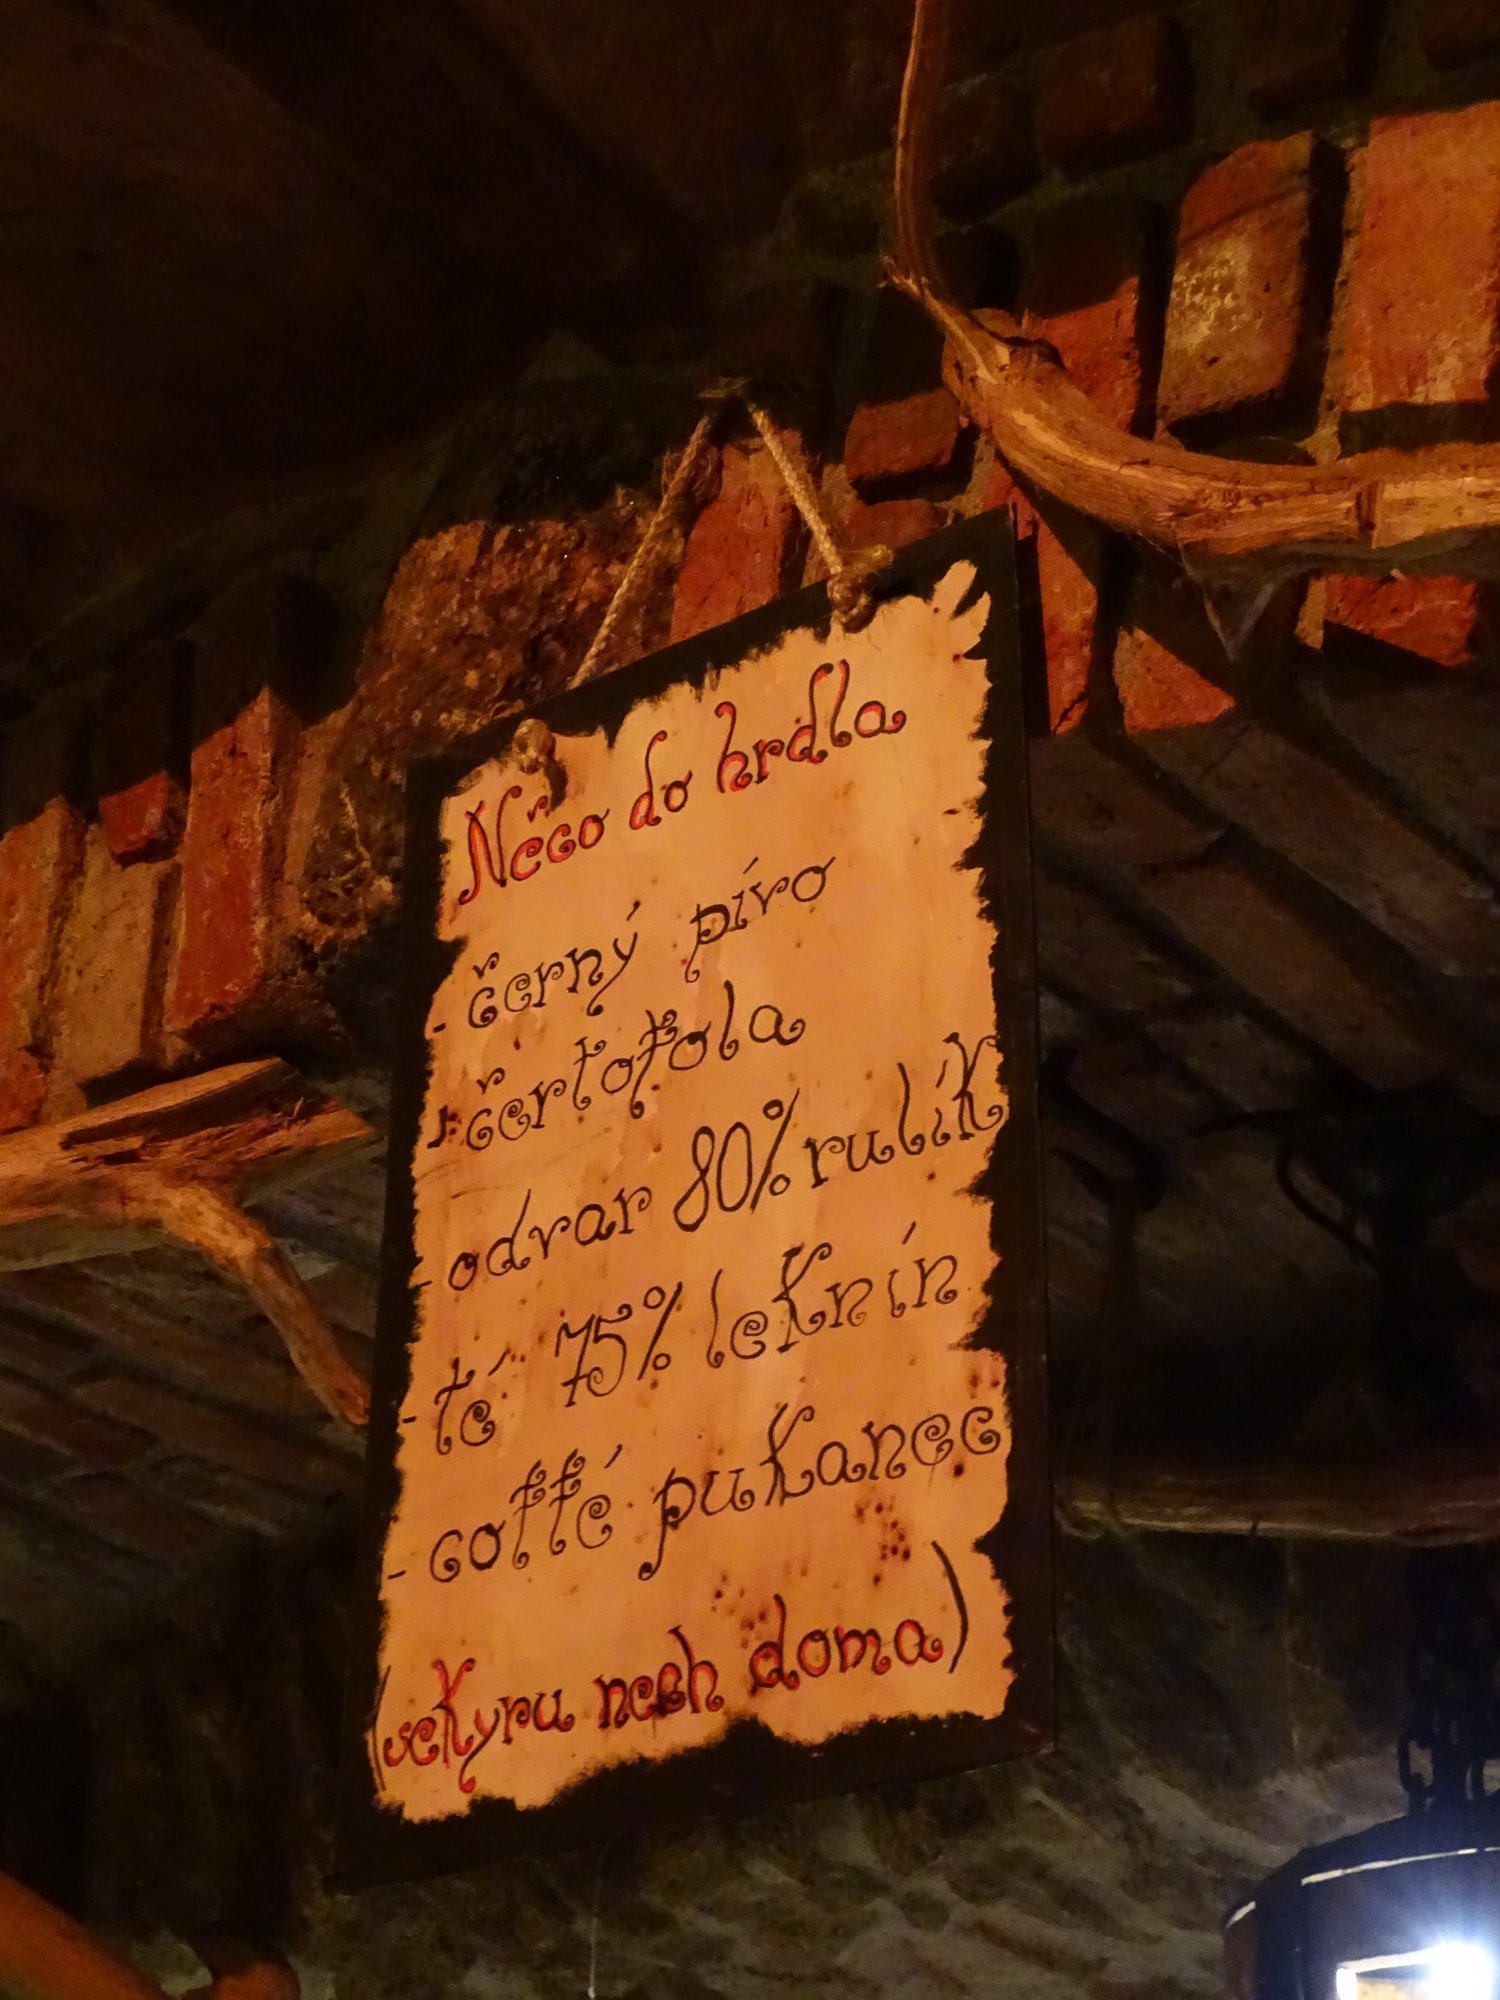 Něco do hrdla
- černý pivo
- čertofola
- odvar 80% rulík
- té 75% leknín
- coffé pukanec
(sekyru nech doma)